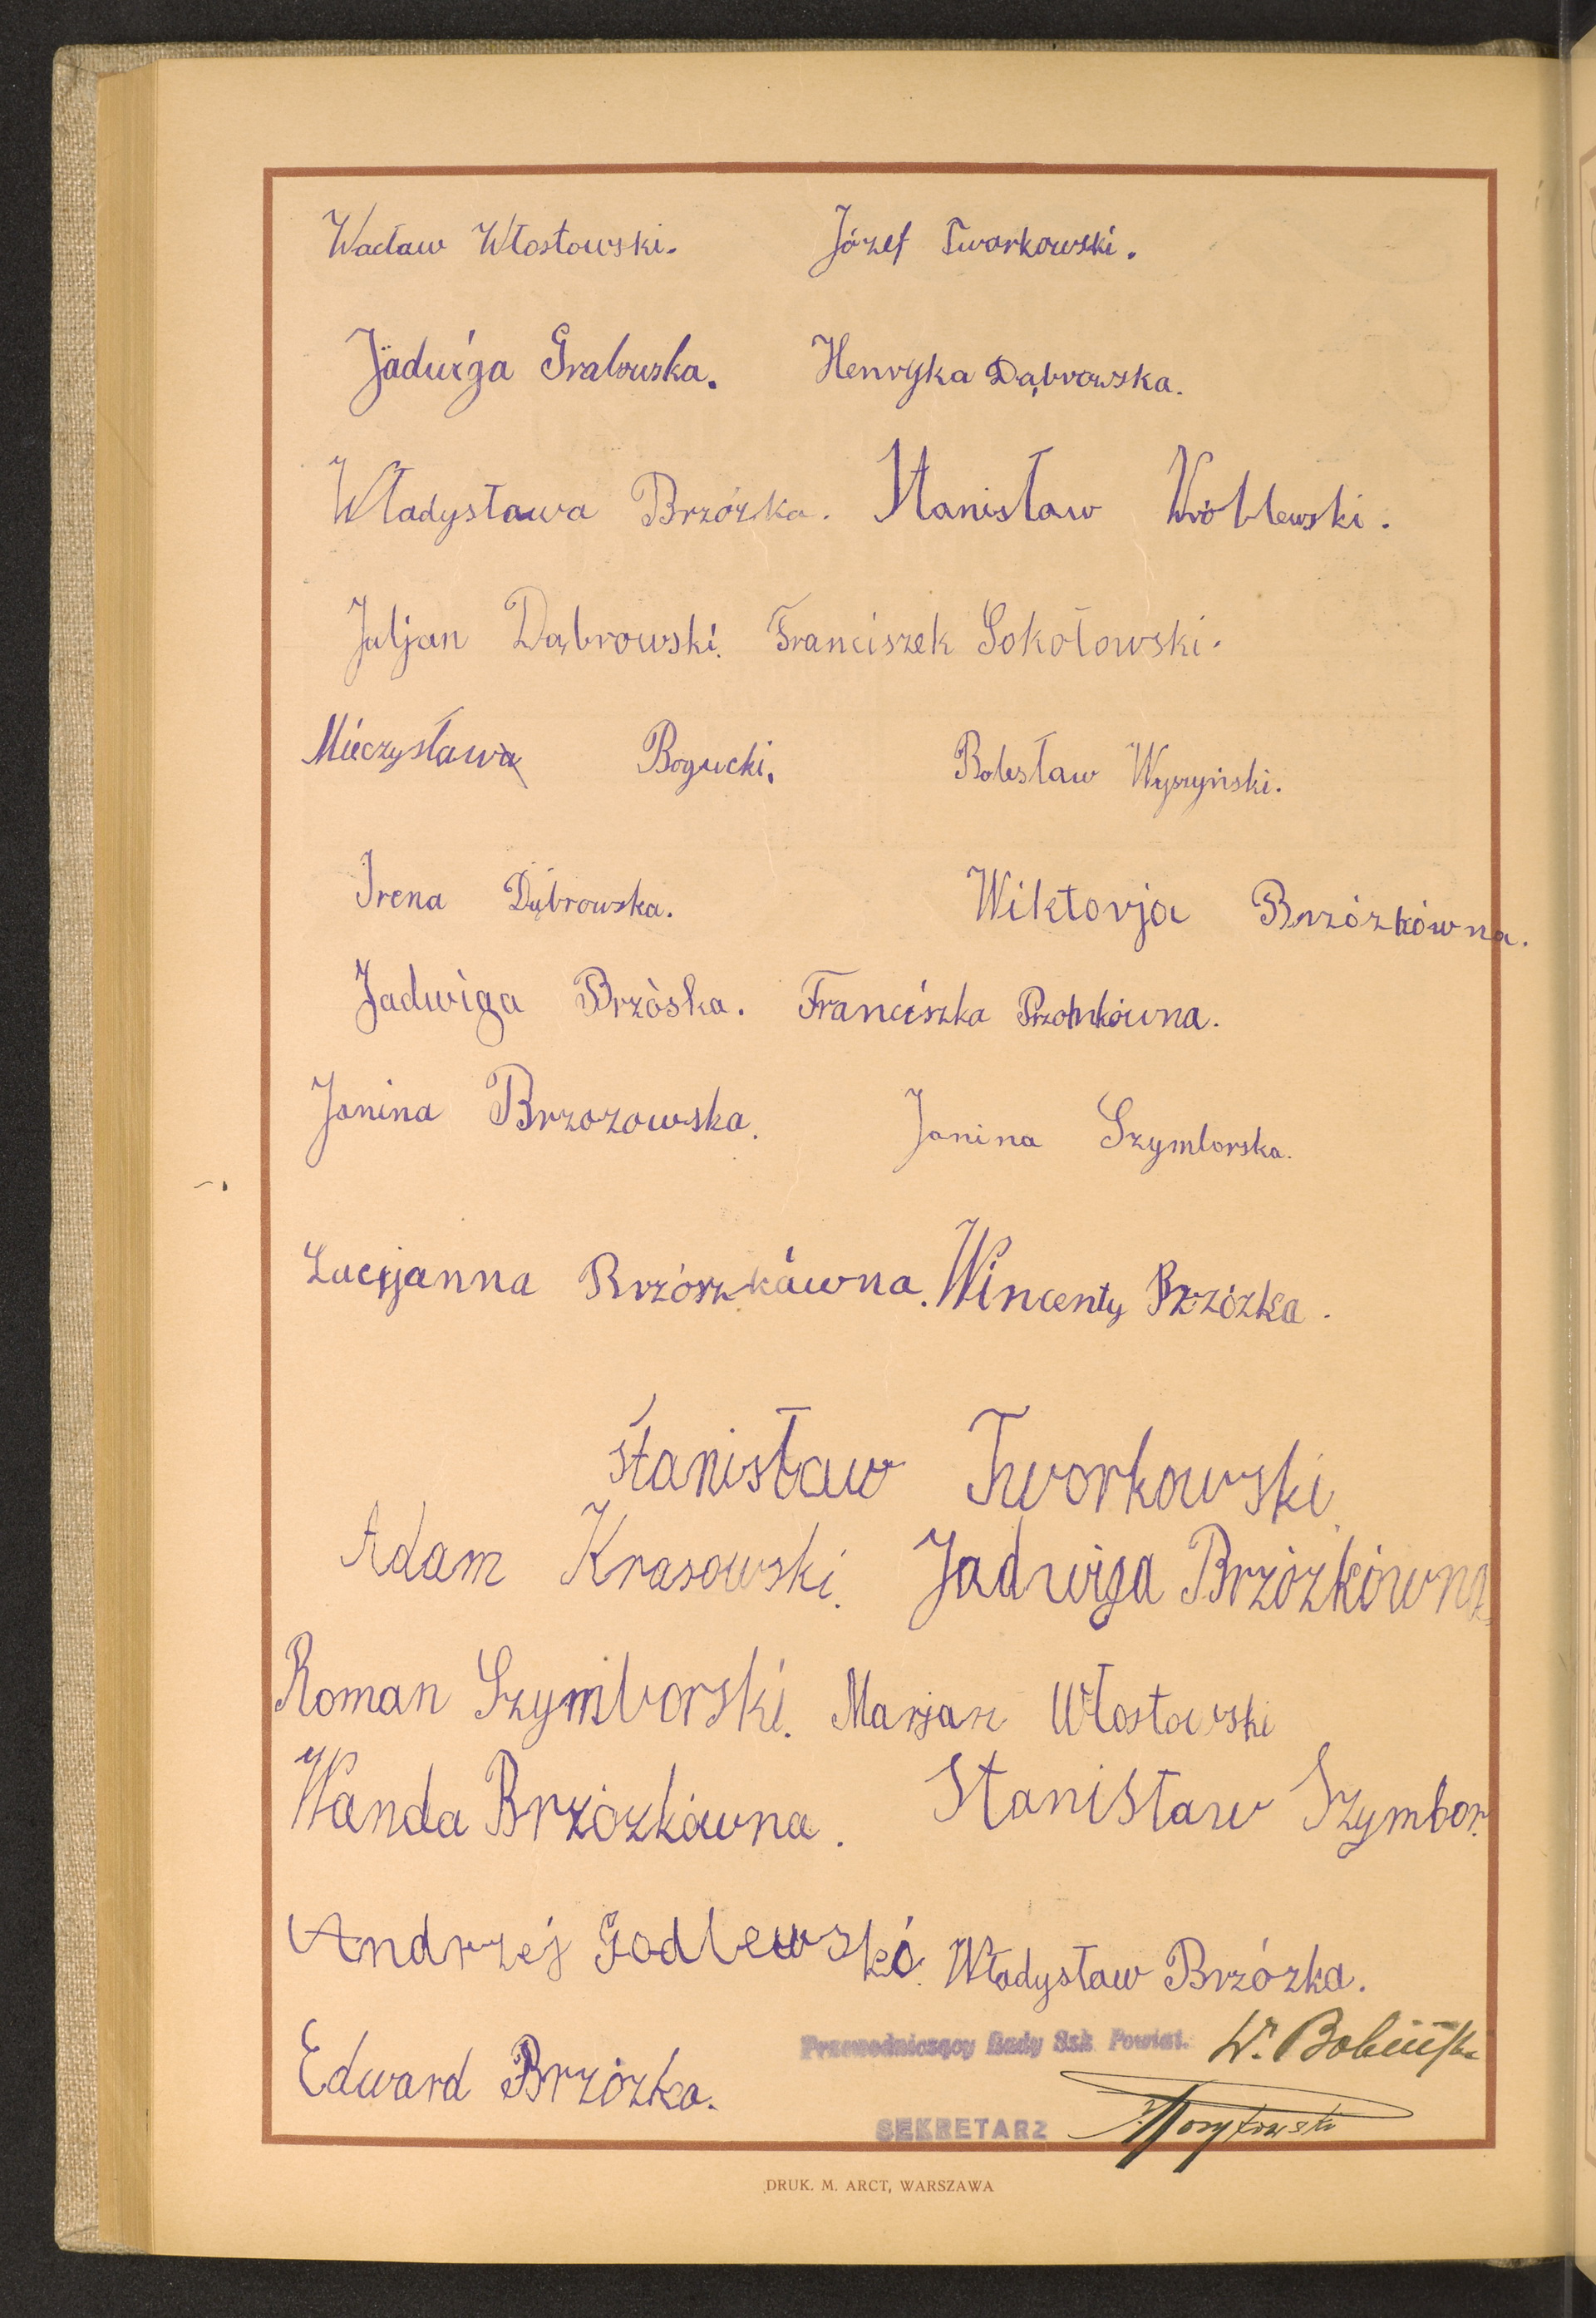 Wacław Włostowski. Józef Tworkowski.
Jadwiga Grabowska. Henryka Dąbrowska.
Władysława Brzózka. Stanisław Wróblewski.
Juljan Dąbrowski. Franciszek Sokołowski.
Mieczysława Bogucki. Bolesław Wyszyński.
Irena Dąbrowska. Wiktorja Brzózkówna.
Jadwiga Brzòska. Franciszka
Janina Brzozowska. Janina Szymborska.
Lucyjanna Brzószkówna. Wincenty Brzózka.
Stanisław Tworkowski.
Adam Krasowski. Jadwiga Brzózkówna.
Roman Szymborski. Marjan Włostowski
Wanda Brzózkówna. Stanisław Szymbor.
Andrzej Godlewski. Władysław Brzózka.
Przewodniczący Rady Szk Powiat. W.
Edward Brzózka.
SEKRETARZ
DRUK. M. ARCT, WARSZAWA